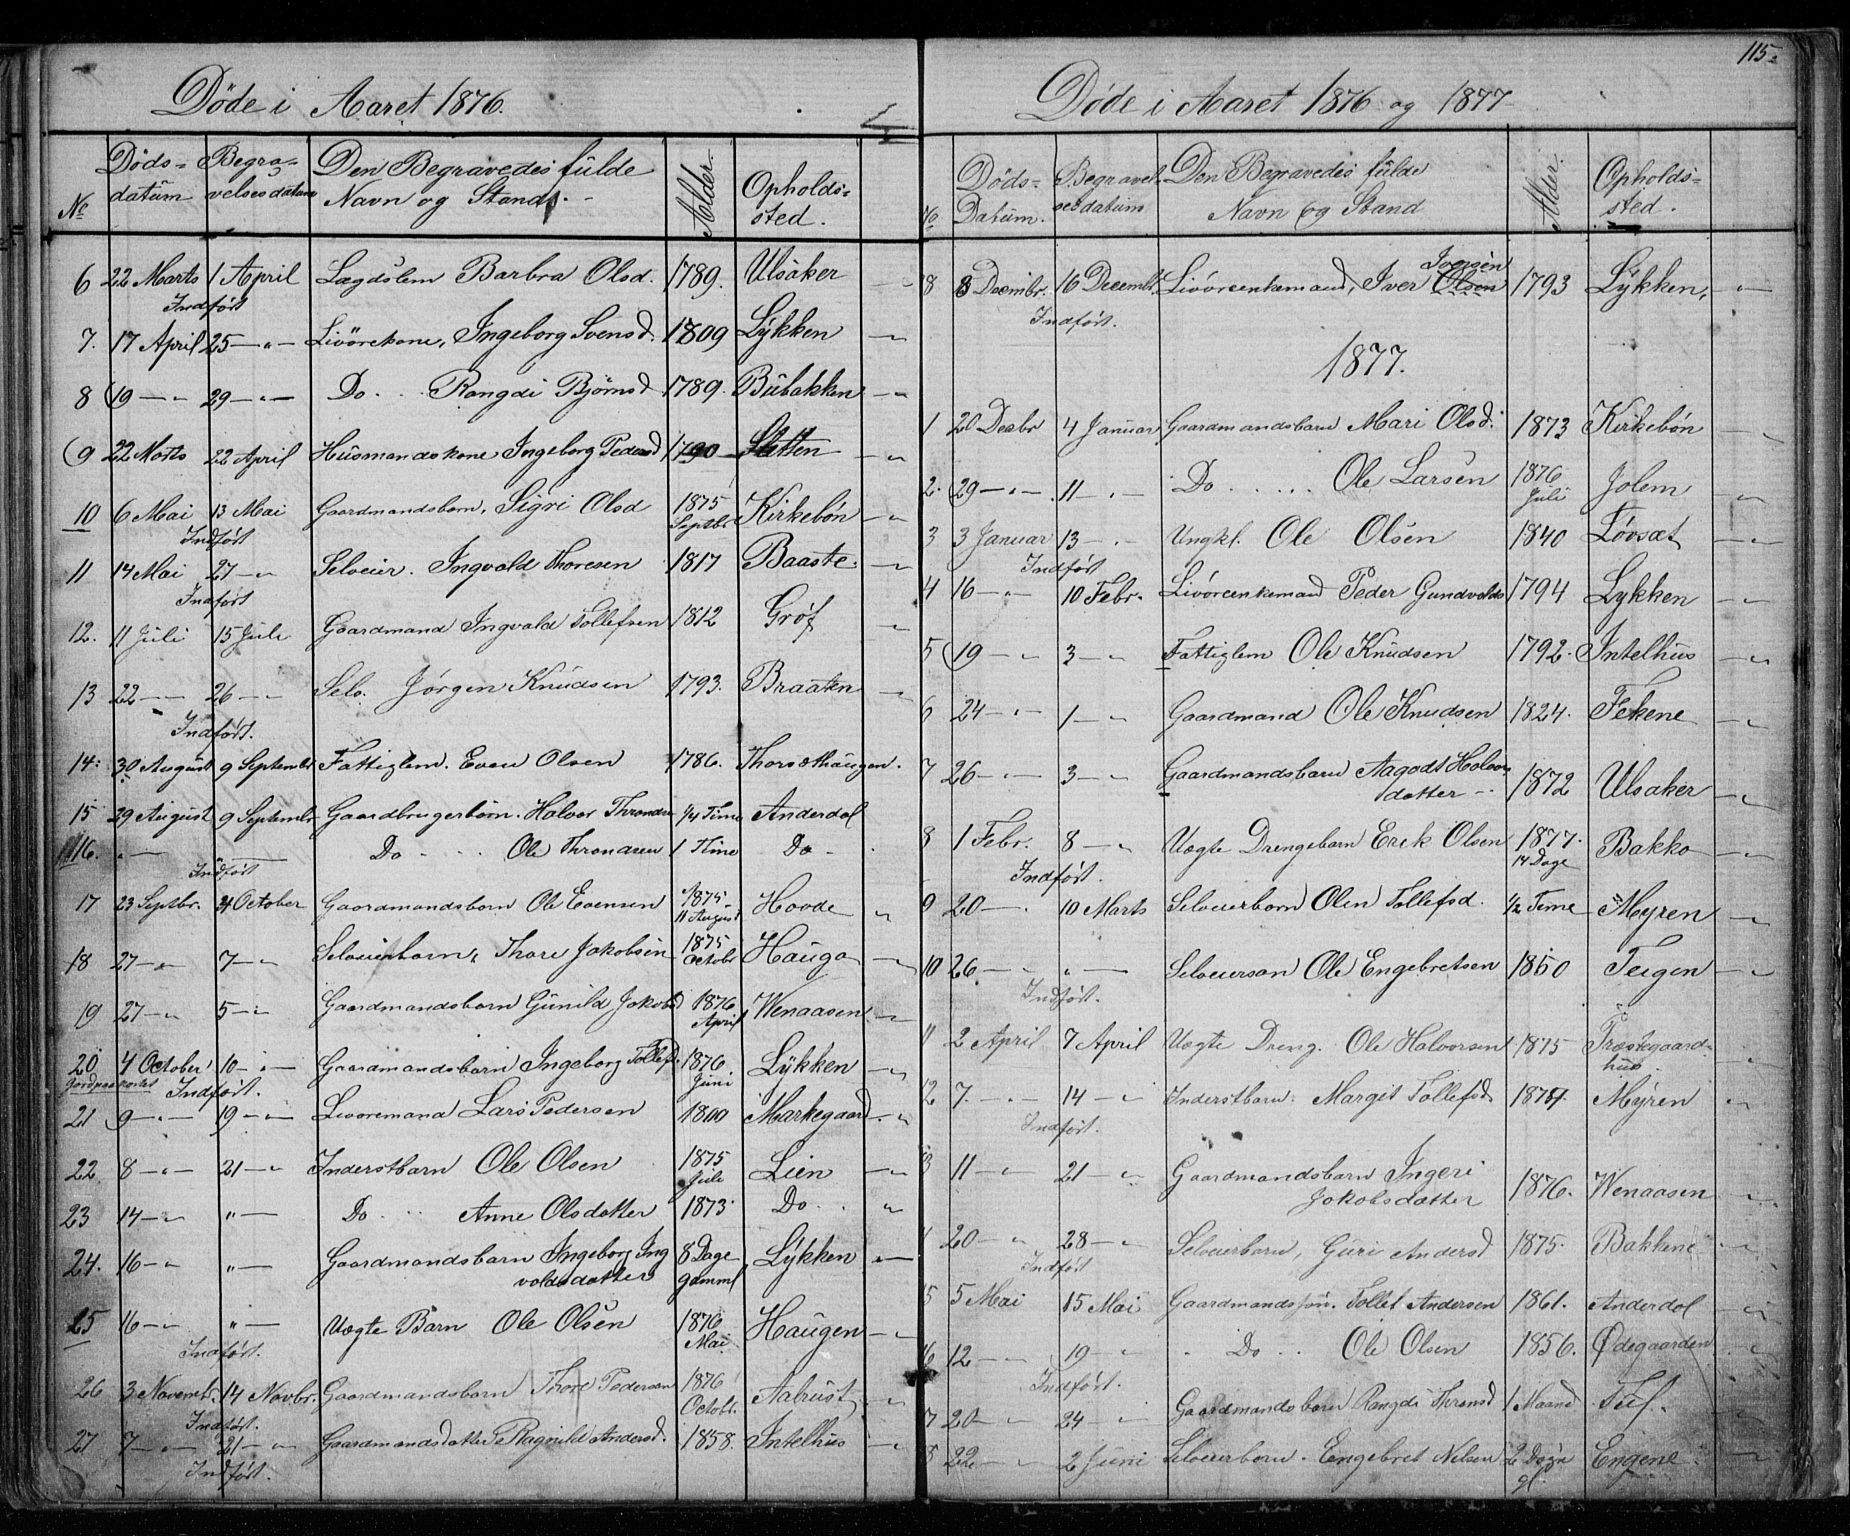 Døde i Aaret 1876.
№ Døds=datum Begra=velsesdatum Den Begravedes fulde Navn og Stand. Alder. Opholds=sted.
6 22 Marts 1 April Lægdslem Barbra Olsd. 1789. Ulsaker
Indført
7. 17 April 25 — " — Livørekone, Ingeborg Svensd. 1809 Lykken — "
8 19 — " 29 — " — Do. .. Rangdi Bjørnsd 1789. Bubakken — "
9 22 Marts 22 April Husmandskone Ingeborg Pedersd 1790 Slatten — "
10 6 Mai 13 Mai Gaardmandsbarn, Sigri Olsd 1875 Septbr Kirkebøn — "
Indført
11 14 Mai 27 — " Selveier. Ingvald Thoresen 1817 Baaste. — "
Indført
12. 11 Juli 15 Juli Gaardmand Ingvald Tollefsen 1812 Grøf "
13 22 — " — 26 — " Selv. Jørgen Knudsen 1793. Braaten — "
Indført.
14. 30 August 9 Septembr Fattiglem. Even Olsen 1786. Thorsethaugen.
15 29 August 9 Septembr Gaardbrugerbørn. Halvor Throndsen 1/4 Time Anderdal
16. " — Do .... Ole Throndsen 1 Time Do —
Indført
17 23 Septbr. 4 October Gaardmandsbarn Ole Evensen 1875 11 August Hovde — "
18 27 — " 7 — " Selveierbarn, Thore Jakobsen 1875 Octobr Hauga — "
19 27 — " 5 — " Gaardmandsbarn Gunild Jakobsd 1876 April Wenaasen — "
20 4 October 10 — " — Gaardmandsbarn Ingeborg Tollefsd. 1876 Juni Lykken — "
Jordpaakastet Indført.
21 9 — " — 19 — " Livøremand Lars Pedersen 1800 Markegaard — "
22 8 — " — 21 — " Inderstbarn Ole Olsen 1875 Juli Lien — "
23 14 — " " — Do. .. Anne Olsdatter 1873 Do. .. "
24. 16 — " " — Gaardmandsbarn Ingeborg Ing 8 Dage Lykken — " —
voldsdatter gamml
25 16 — " " — Uægte Barn Ole Olsen 1876 Mai Haugen — "
Indført.
26 3 Novembr. 14 Novbr. Gaardmandsbarn Thore Pedersen 1876 Octobr. Aalrust — "
Indført.
27 7 — " — 21 — " Gaardmandsdatter Ragnild Andersd. 1858. Intelhus — "
Indført.
115.
Døde i Aaret 1876 og 1877
№ Døds=Datum. Begravelsesdatum Den Begravedes fulde Navn og Stand Alder. Opholds=sted.
Iversen
8 8 Decembr. 16 Decembr. Livøreenkemand, Iver Olsen 1793 Lykken, — " —
Indført.
1877.
1 20 Decbr 4 Januar Gaardmandsbarn Mari Olsd. 1873 Kirkebøn — "
2. 29 — " — 11 — " — Do ..... Ole Larsen 1876 Juli Jolem — "
3 3 Januar 13 — " — Ungkl. Ole Olsen 1840 Løvsæt — "
Indført
4 16 — " 10 Febr. Livøreenkemand Peder Gundvalds 1794 Lykken — "
5 19 — " 3 — " Fattiglem Ole Knudsen 1792. Intelhus — "
6 24 — " 1 — " Gaardmand Ole Knudsen 1824. Fekene — "
7 26 — " 3 — " Gaardmandsbarn Aagodt Halvors 1872 Ulsaker — "
datter —
8 1 Febr. 8 — " Uægte Drengebarn Erik Olsen 1877. 14 Dage Bakko — "
Indført.
9 20 — " 10 Marts Selveierbarn Olen Tollefsd. 1/2 Time Myren — "
10 26 — " " — Selveiersøn Ole Engebretsen 1850 Teigen — "
Indført.
11 2 April 7 April Uægte Dreng. Ole Halvorsen 1875 Præstegaard=hus — "
12 7. — " — 14 — " Inderstbarn. Margit Tollefsd. 1874 Myren — "
Indført.
13 11 — " 21 — " Gaardmandsbarn Ingeri
Jakobsdatter 1876. Wenaasen — "
20 — " 28 — " Selveierbarn, Guri Andersd 1875. Bakkene — "
Indført
5 5 Mai 15 Mai Gaardmandssøn. Tollef Andersen 1861. Anderdal — "
6 12 — " 19 — " Do .. Ole Olsen 1856. Ødegaarden — "
Indført.
7 20 — " 24 — " Gaardmandsbarn Rangdi Thronsd 1 Maaned Tuf. — "
8 22 — " 2 Juni Selveierbarn. Engebret Nilsen 2 Døgn gl. Engene — "